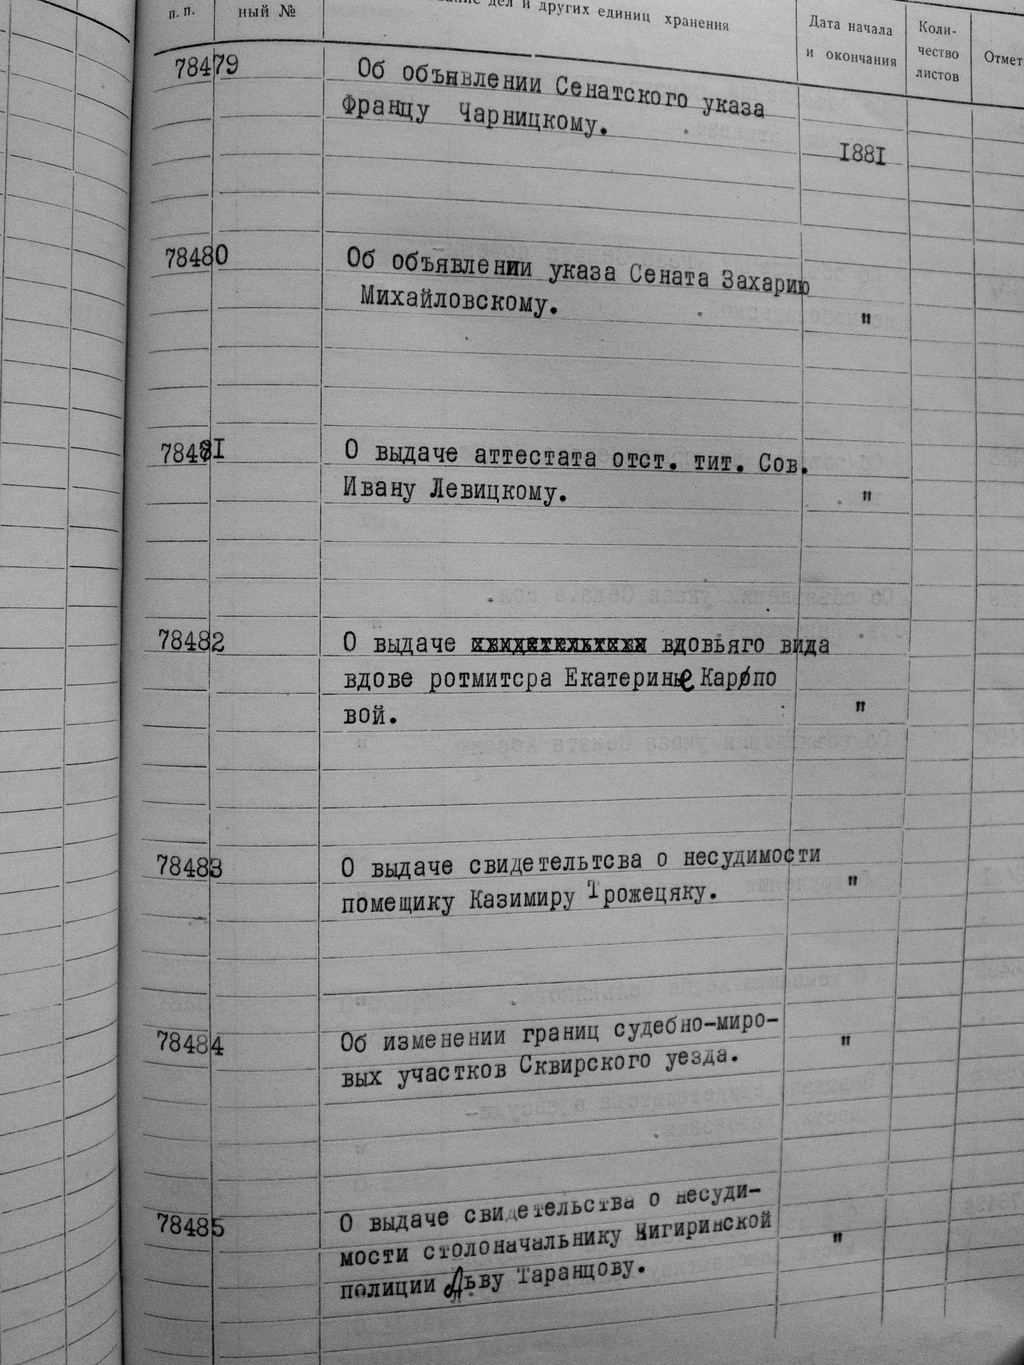 п. п.
ный №
дел и других единиц хранения
Дата начала
и окончания
Коли-
чество
листов
Отмет
78479
Об объявлении Сенатского указа
Францу Чарницкому.
1881
78480
Об объявлении указа Сената Захарию
Михайловскому.
"
78481
О выдаче аттестата отст. тит. Сов.
Ивану Левицкому.
"
78482
О выдаче вдовьяго вида
вдове ротмитсра Екатерине Карпо
вой.
"
78483
О выдаче свидетельтсва о несудимости
помещику Казимиру Трожецяку.
"
78484
Об изменении границ судебно-миро-
вых участков Сквирского уезда.
"
78485
О выдаче свидетельства о несуди-
мости столоначальнику Чигиринской
полиции Льву Таранцову.
"